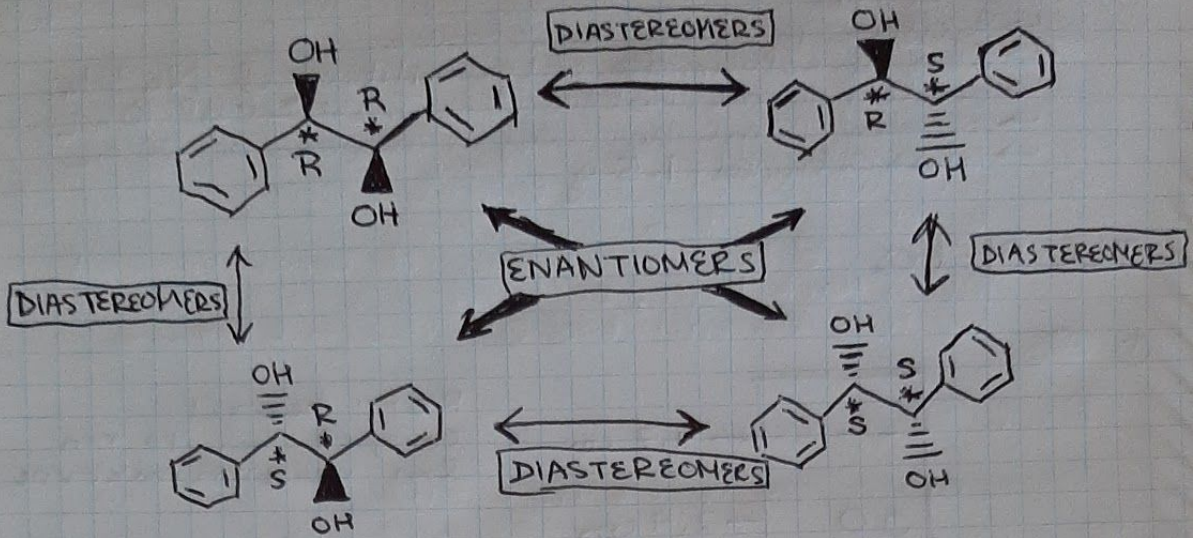 DIASTEREOMERS
OH
R
R
OH
OH
S
R
OH
DIASTEREOMERS
ENANTIOMERS
DIASTEREOMERS
OH
R
S
OH
OH
S
S
OH
DIASTEREOMERS